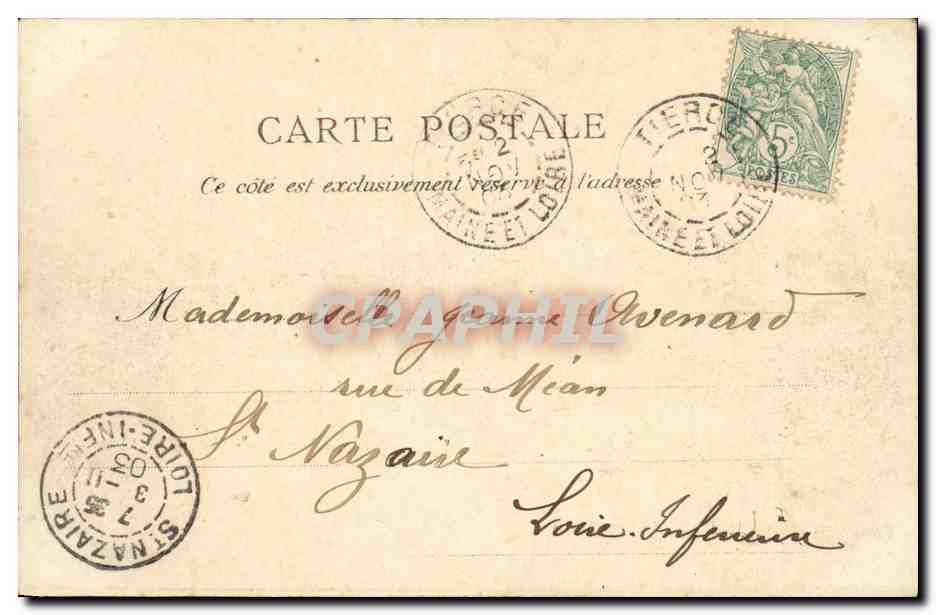 CARTE POSTALE
Ce côté est exclusivement réservé à l'adresse
TIERCE
2
NOV
MAINE ET LOIRE
TIERCE
2
NOV
03
MAINE ET LOIRE
5c
POSTES
CPAPHIL
Mademoiselle Jeanne Avenard
rue de Méan
St Nazaire
Loire-Inférieure
ST NAZAIRE
7 35
3 11
03
LOIRE-INFRE